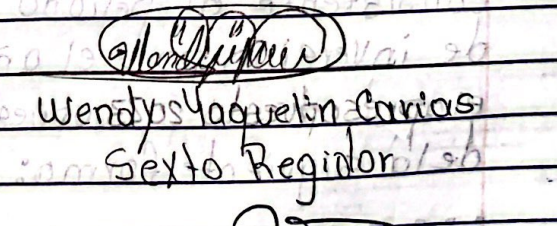 Wendys Yaquelin Carias
Sexto Regidor